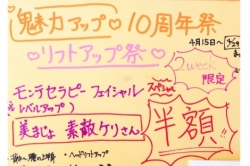 魅力アップ♡10周年祭
4月15日〜
♡リフトアップ祭♡
2week
限定
モンテセラピーフェイシャル
(レベルアップ)
スペシャル
美まじょ 素敵ケリさん
半額!!